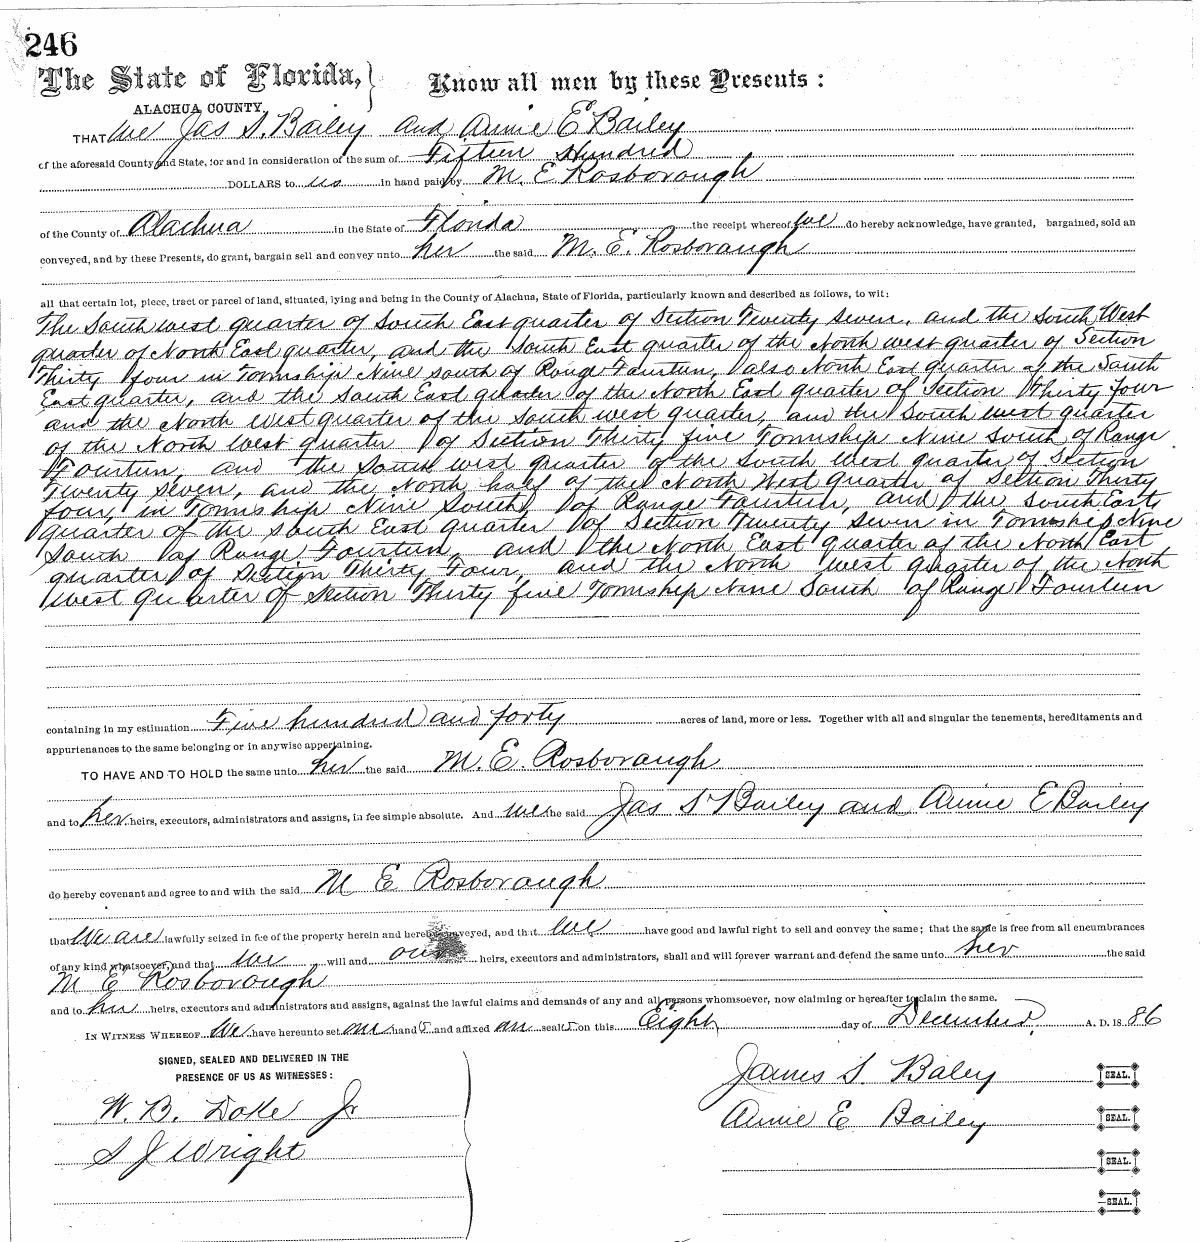 246
The State of Florida, } Know all men by these Presents:
ALACHUA COUNTY.
THAT We Jas S. Bailey and Annie E Bailey
of the aforesaid County and State, for and in consideration of the sum of Fifteen Hundred
DOLLARS to us in hand paid by M. E Rosborough
of the County of Alachua in the State of Florida the receipt whereof we do hereby acknowledge, have granted, bargained, sold an
conveyed, and by these Presents, do grant, bargain sell and convey unto her the said M. E. Rosborough
all that certain lot, piece, tract or parcel of land, situated, lying and being in the County of Alachua, State of Florida, particularly known and described as follows, to wit:
The South west quarter of South East quarter of Section Twenty Seven, and the South West
quarter of North East quarter, and the South East quarter of the North west quarter of Section
Thirty four in Township Nine south of Range Fourteen, also North East quarter of the South
East quarter, and the South East quarter of the North East quarter of Section Thirty Four
and the North West quarter of the South west quarter, and the South west quarter
of the North west quarter of Section Thirty five Township Nine South of Range
Fourteen, and the South west quarter of the South West quarter of Section
Twenty seven, and the North half of the North West quarter of Section Thirty
four, in Township Nine South, of Range Fourteen, and the South East
quarter of the South East quarter of Section Twenty Seven in Township Nine
South of Range Fourteen, and the North East quarter of the North East
quarter of Section Thirty Four, and the North west quarter of the North
West quarter of Section Thirty five Township Nine South of Range Fourteen
containing in my estimation Five hundred and forty acres of land, more or less. Together with all and singular the tenements, hereditaments and
appurtenances to the same belonging or in anywise appertaining.
TO HAVE AND TO HOLD the same unto her the said M. E. Rosborough
and to her heirs, executors, administrators and assigns, in fee simple absolute. And we the said Jas S Bailey and Annie E Bailey
do hereby covenant and agree to and with the said M E Rosborough
that We are lawfully seized in fee of the property herein and hereby conveyed, and that we have good and lawful right to sell and convey the same; that the same is free from all encumbrances
of any kind whatsoever, and that we will and our heirs, executors and administrators, shall and will forever warrant and defend the same unto her the said
M E Rosborough
and to her heirs, executors and administrators and assigns, against the lawful claims and demands of any and all persons whomsoever, now claiming or hereafter to claim the same.
IN WITNESS WHEREOF We have hereunto set our hand s and affixed our seal s on this Eight day of December A. D. 18 86
SIGNED, SEALED AND DELIVERED IN THE
PRESENCE OF US AS WITNESSES:
James S. Baley SEAL.
W. B. Dolle Jr
Annie E Bailey SEAL.
S J Wright
SEAL.
SEAL.